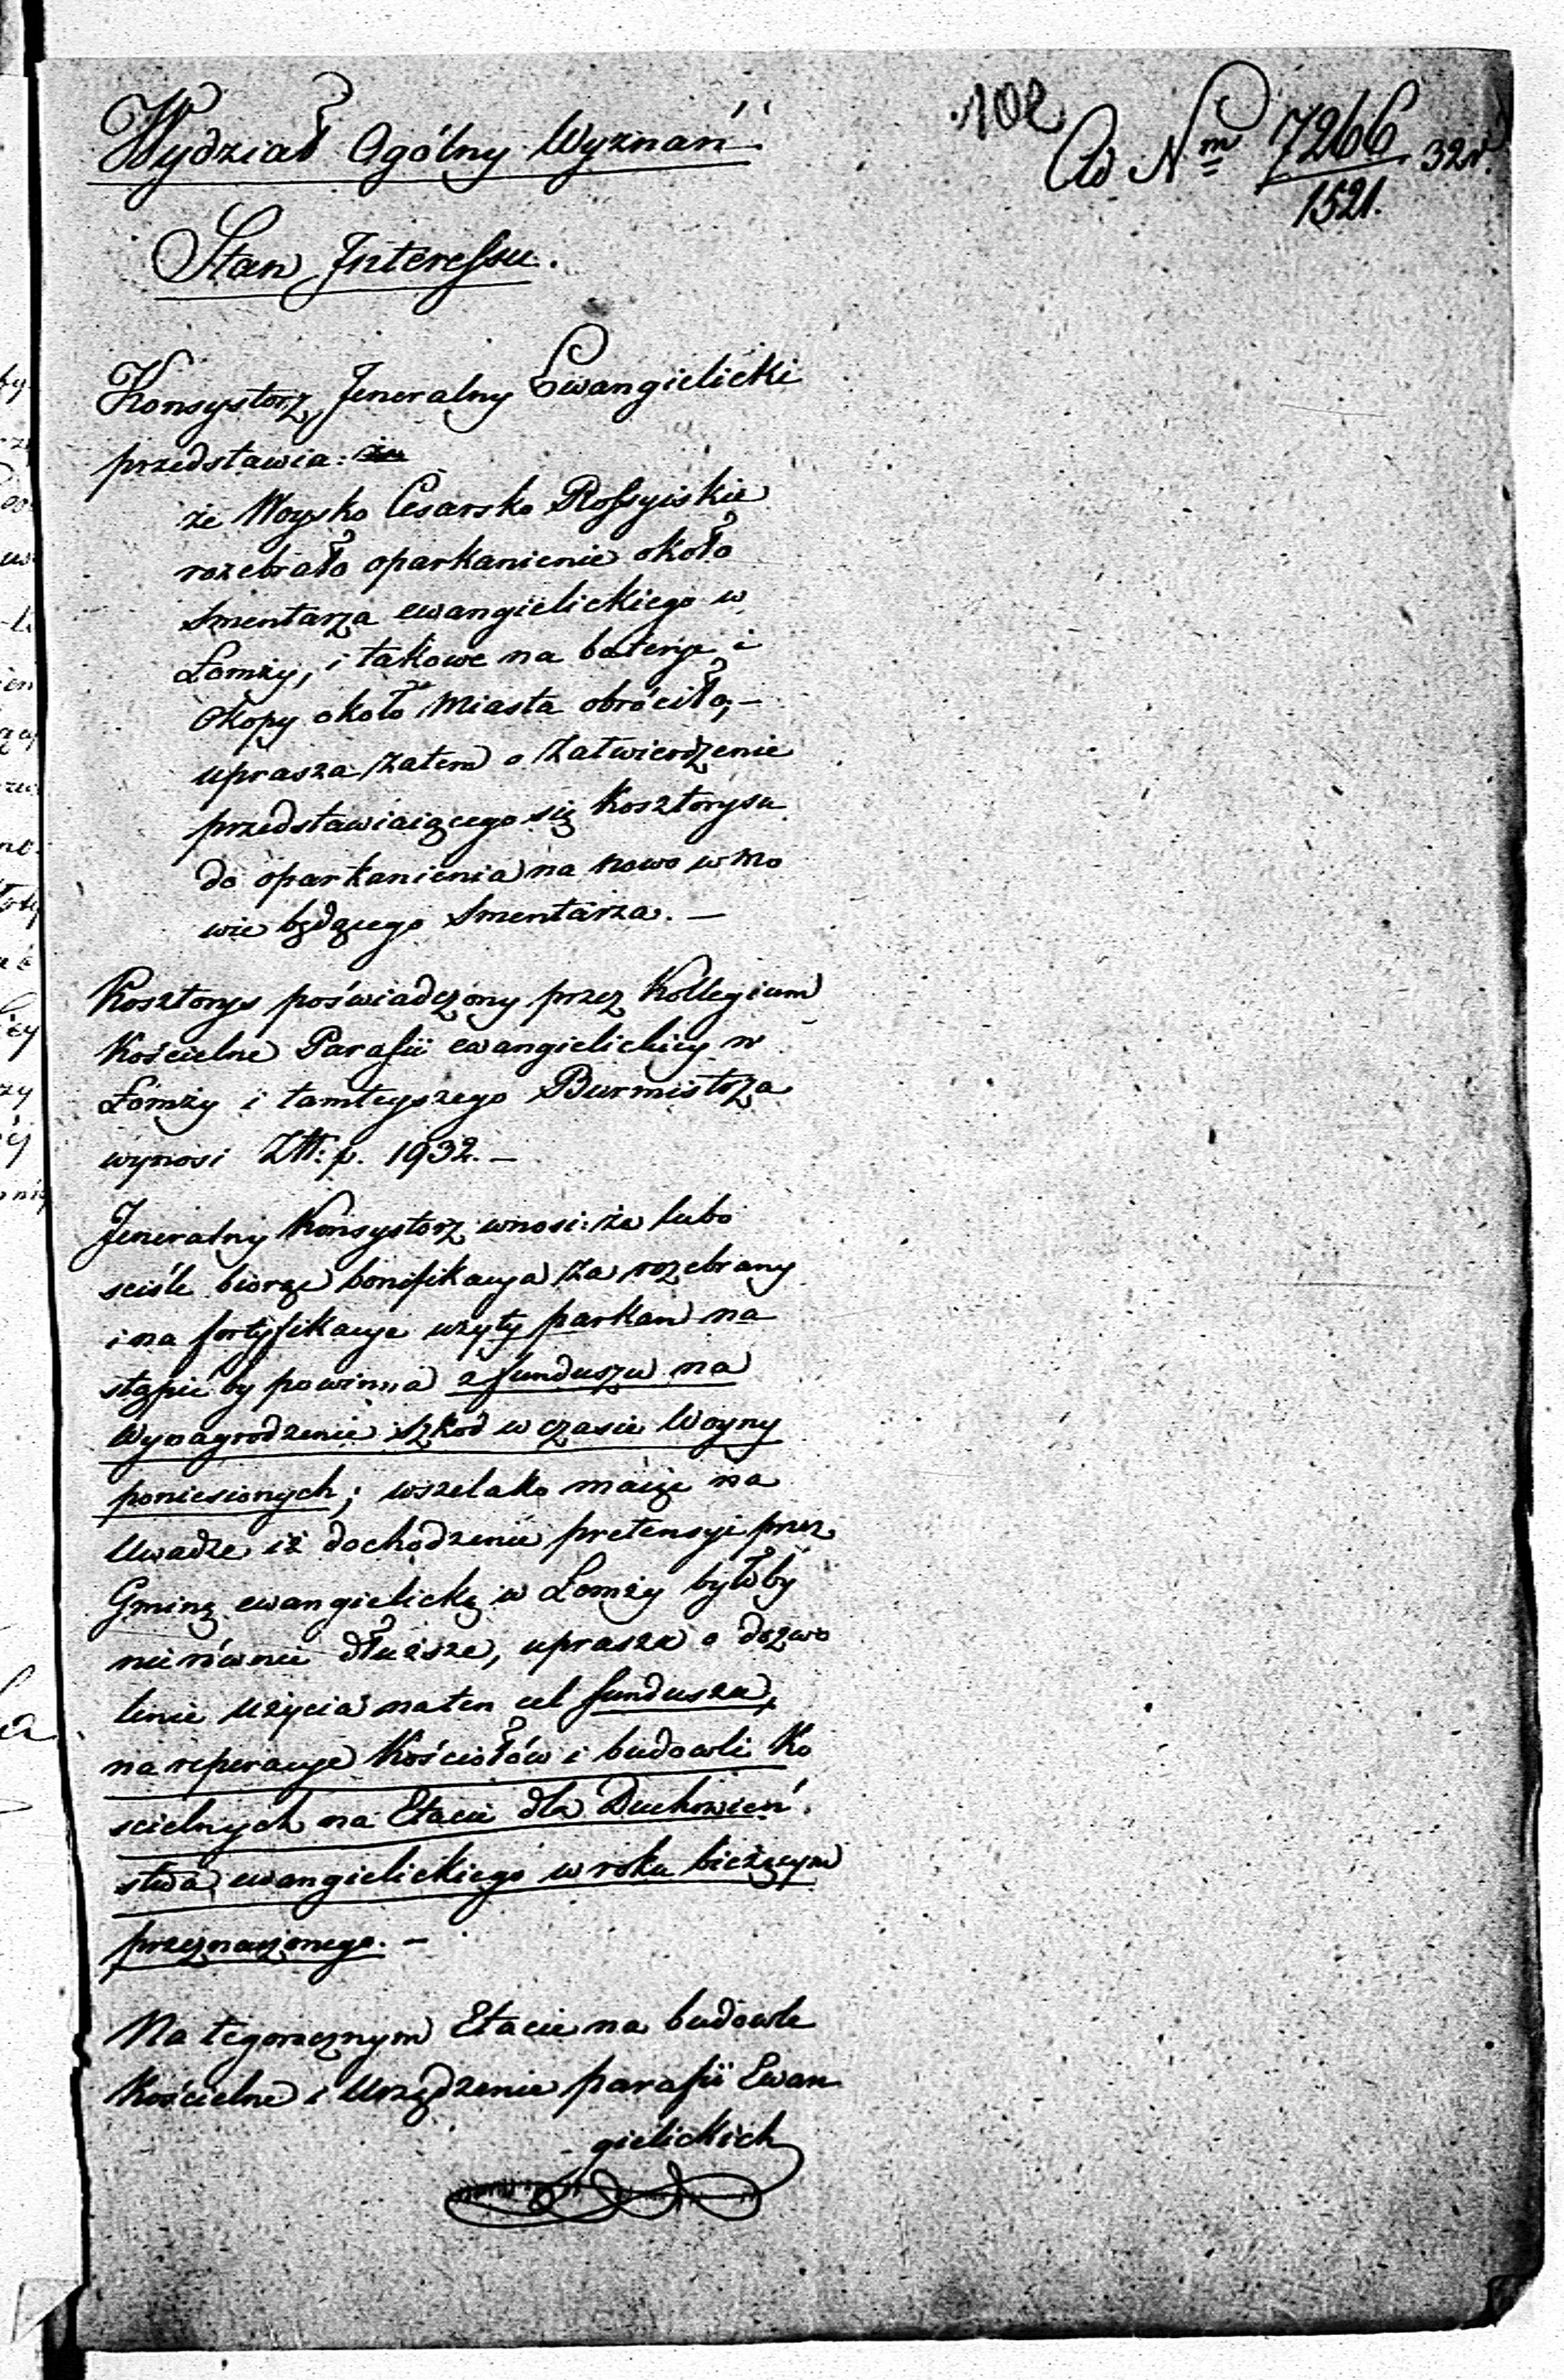 102
Ad Nm 7266/1521. 32 r.
Wydział Ogólny Wyznań.
Stan Interessu.
Konsystorz Jeneralny Ewangielicki
przedstawia:
że Woysko Cesarsko Rossyiskie
rozebrało oparkanienie około
Smentarza ewangielickiego w
Łomży, i takowe na baterye i
Okopy około Miasta obróciło, –
uprasza zatem o Zatwierdzenie
przedstawiaiącego się Kosztorysu
do oparkanienia na nowo w mo
wie będącego Smentarza. –
Kosztorys poświadczony przez Kollegium
Kościelne Parafii ewangielickiey w
Łomży i tamteyszego Burmistrza
wynosi Złł: p. 1932. –
Jeneralny Konsystorz wnosi: że lubo
sciśle biorąc bonifikacya za rozebrany
i na fortyfikacye użyty parkan na
stąpić by powinna z funduszu na
Wynagrodzenie szkód w czasie Woyny
poniesionych; wszelako maiąc na
Uwadze iż dochodzenie pretensyi przez
Gminę ewangielicką w Łomży byłoby
nierównie dłuższe, uprasza o dozwo
lenie użycia na ten cel funduszu,
na reperacye Kościołów i budowli Ko
scielnych na Etacie dla Duchowień
stwa ewangielickiego w roku bieżącym
przeznaczonego. –
Na tegorocznym Etacie na budowle
Kościelne i Urządzenie parafii Ewan
gielickich